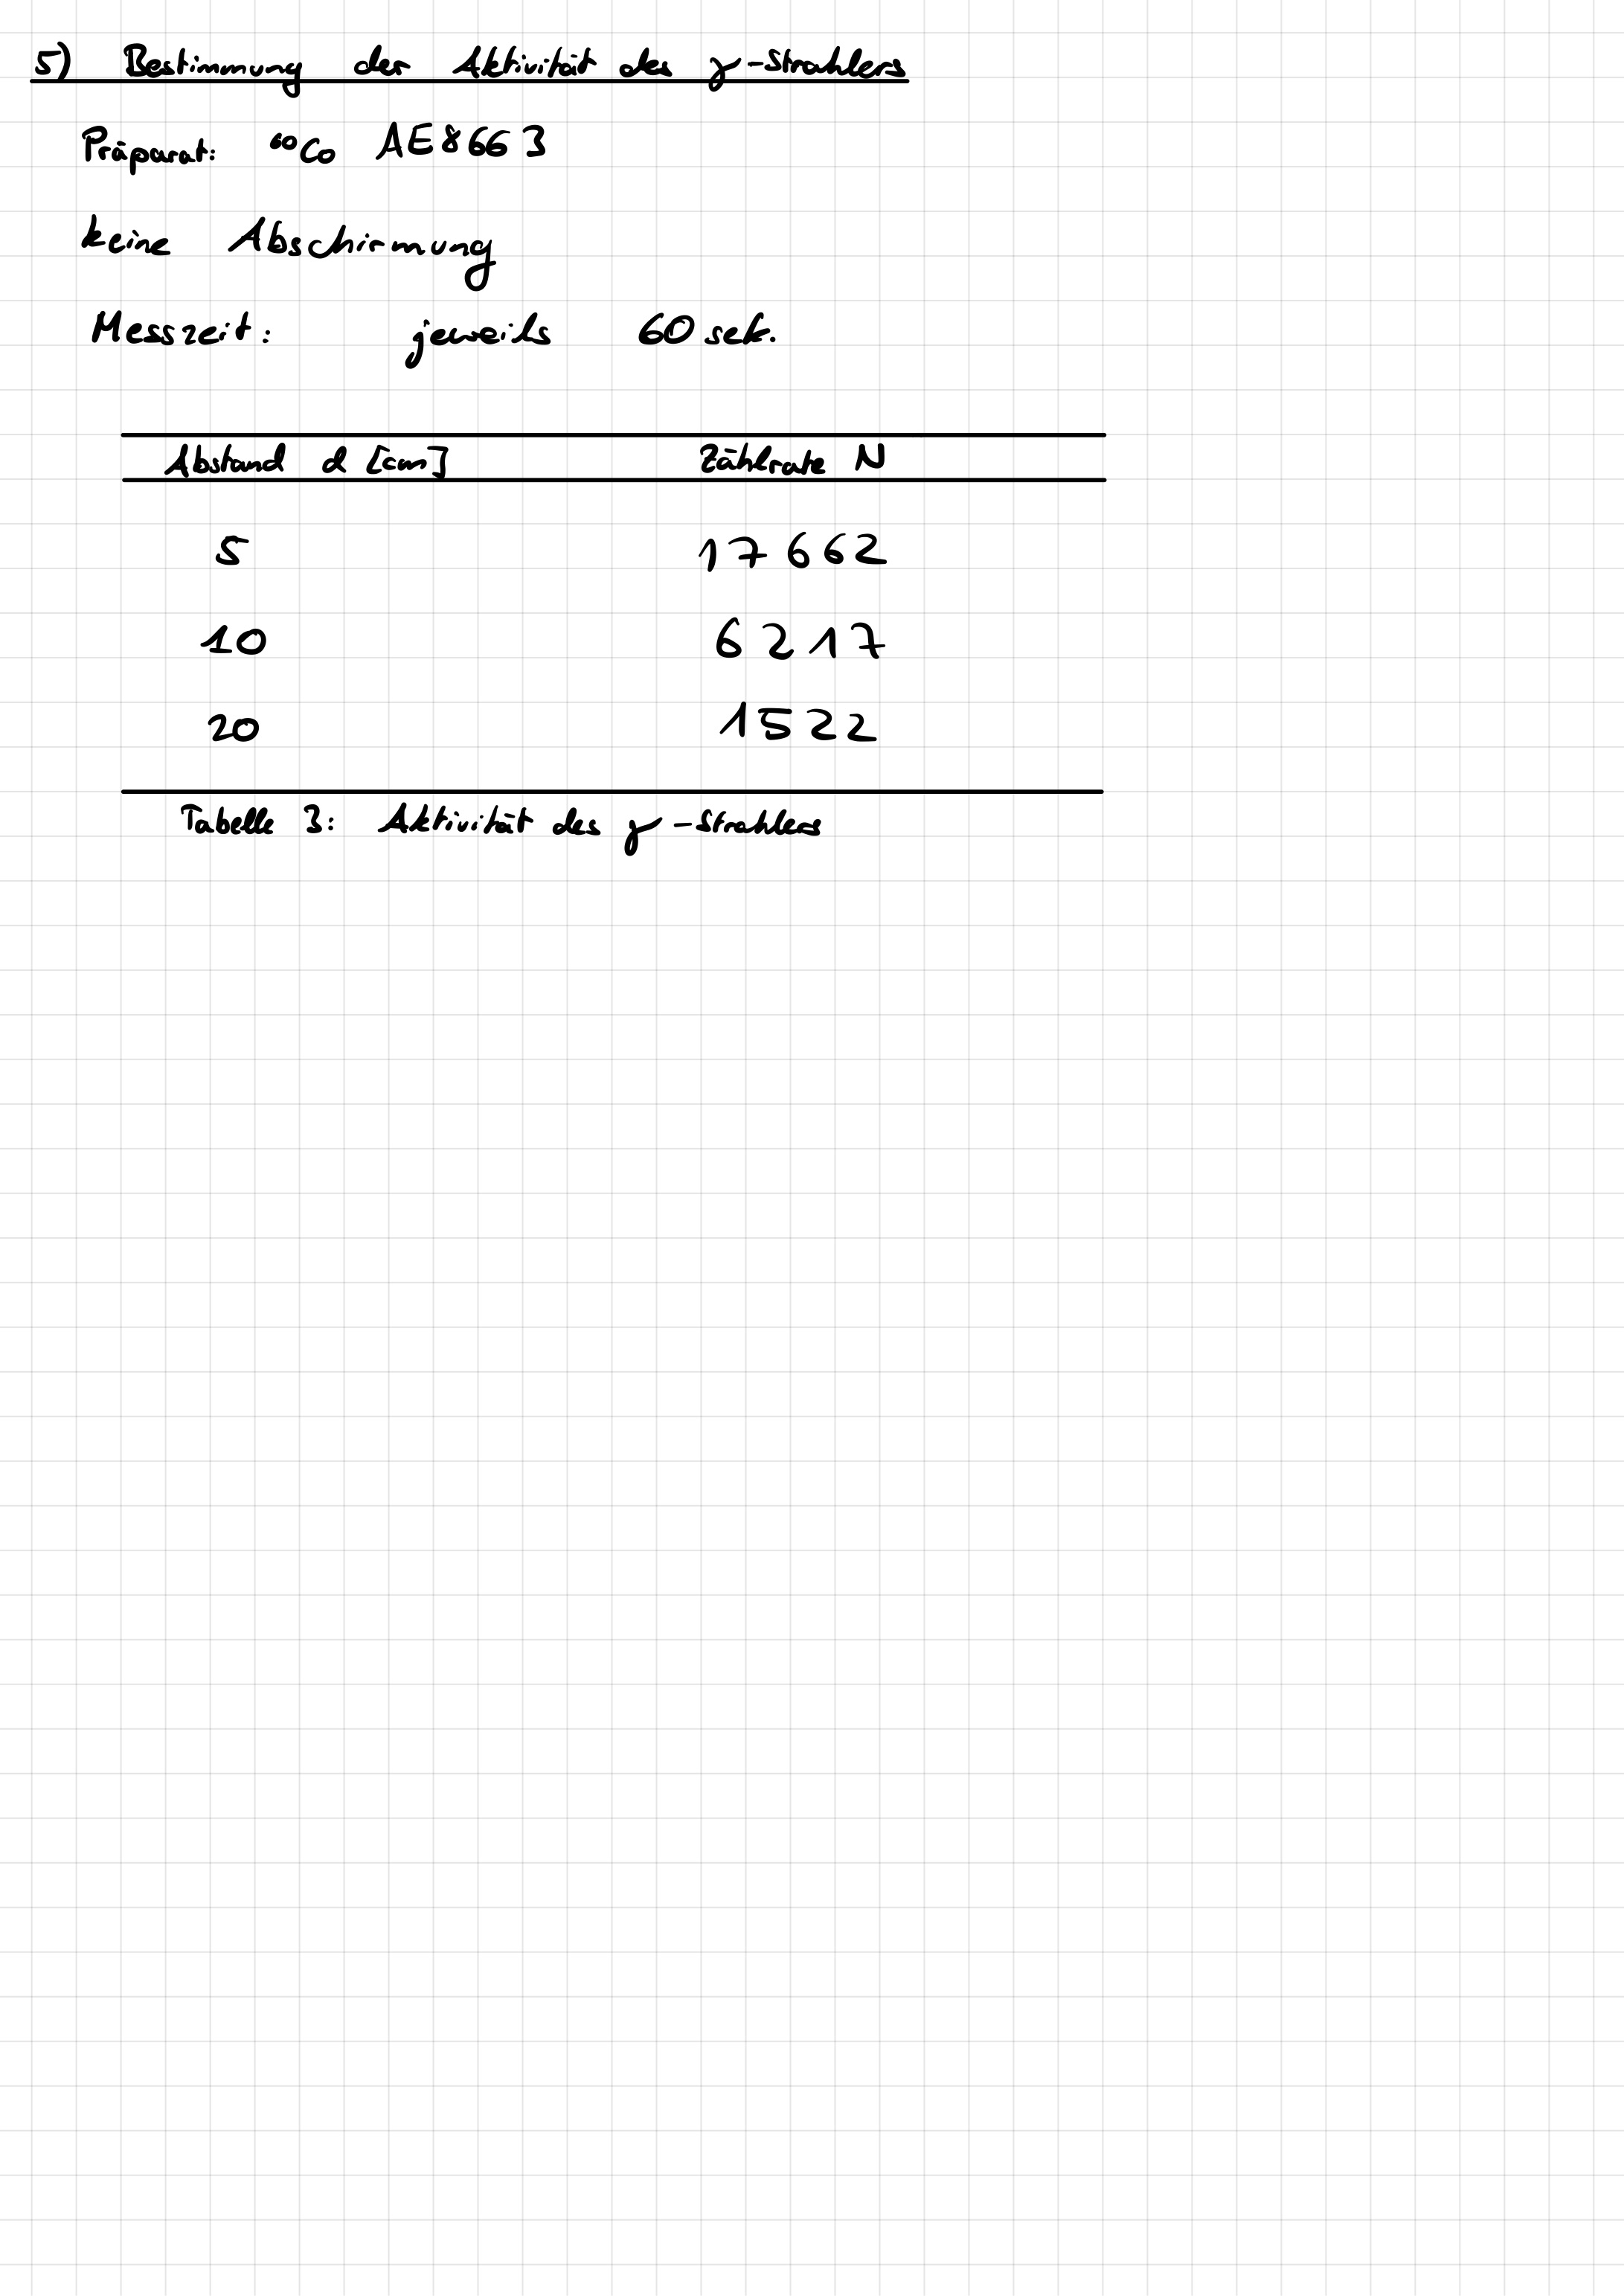 5) Bestimmung der Aktivität des γ-Strahlers
Präparat: ⁶⁰Co AE8663
keine Abschirmung
Messzeit: jeweils 60 sek.
Abstand d [cm] Zählrate N
5 17662
10 6217
20 1522
Tabelle 3: Aktivität des γ-Strahlers